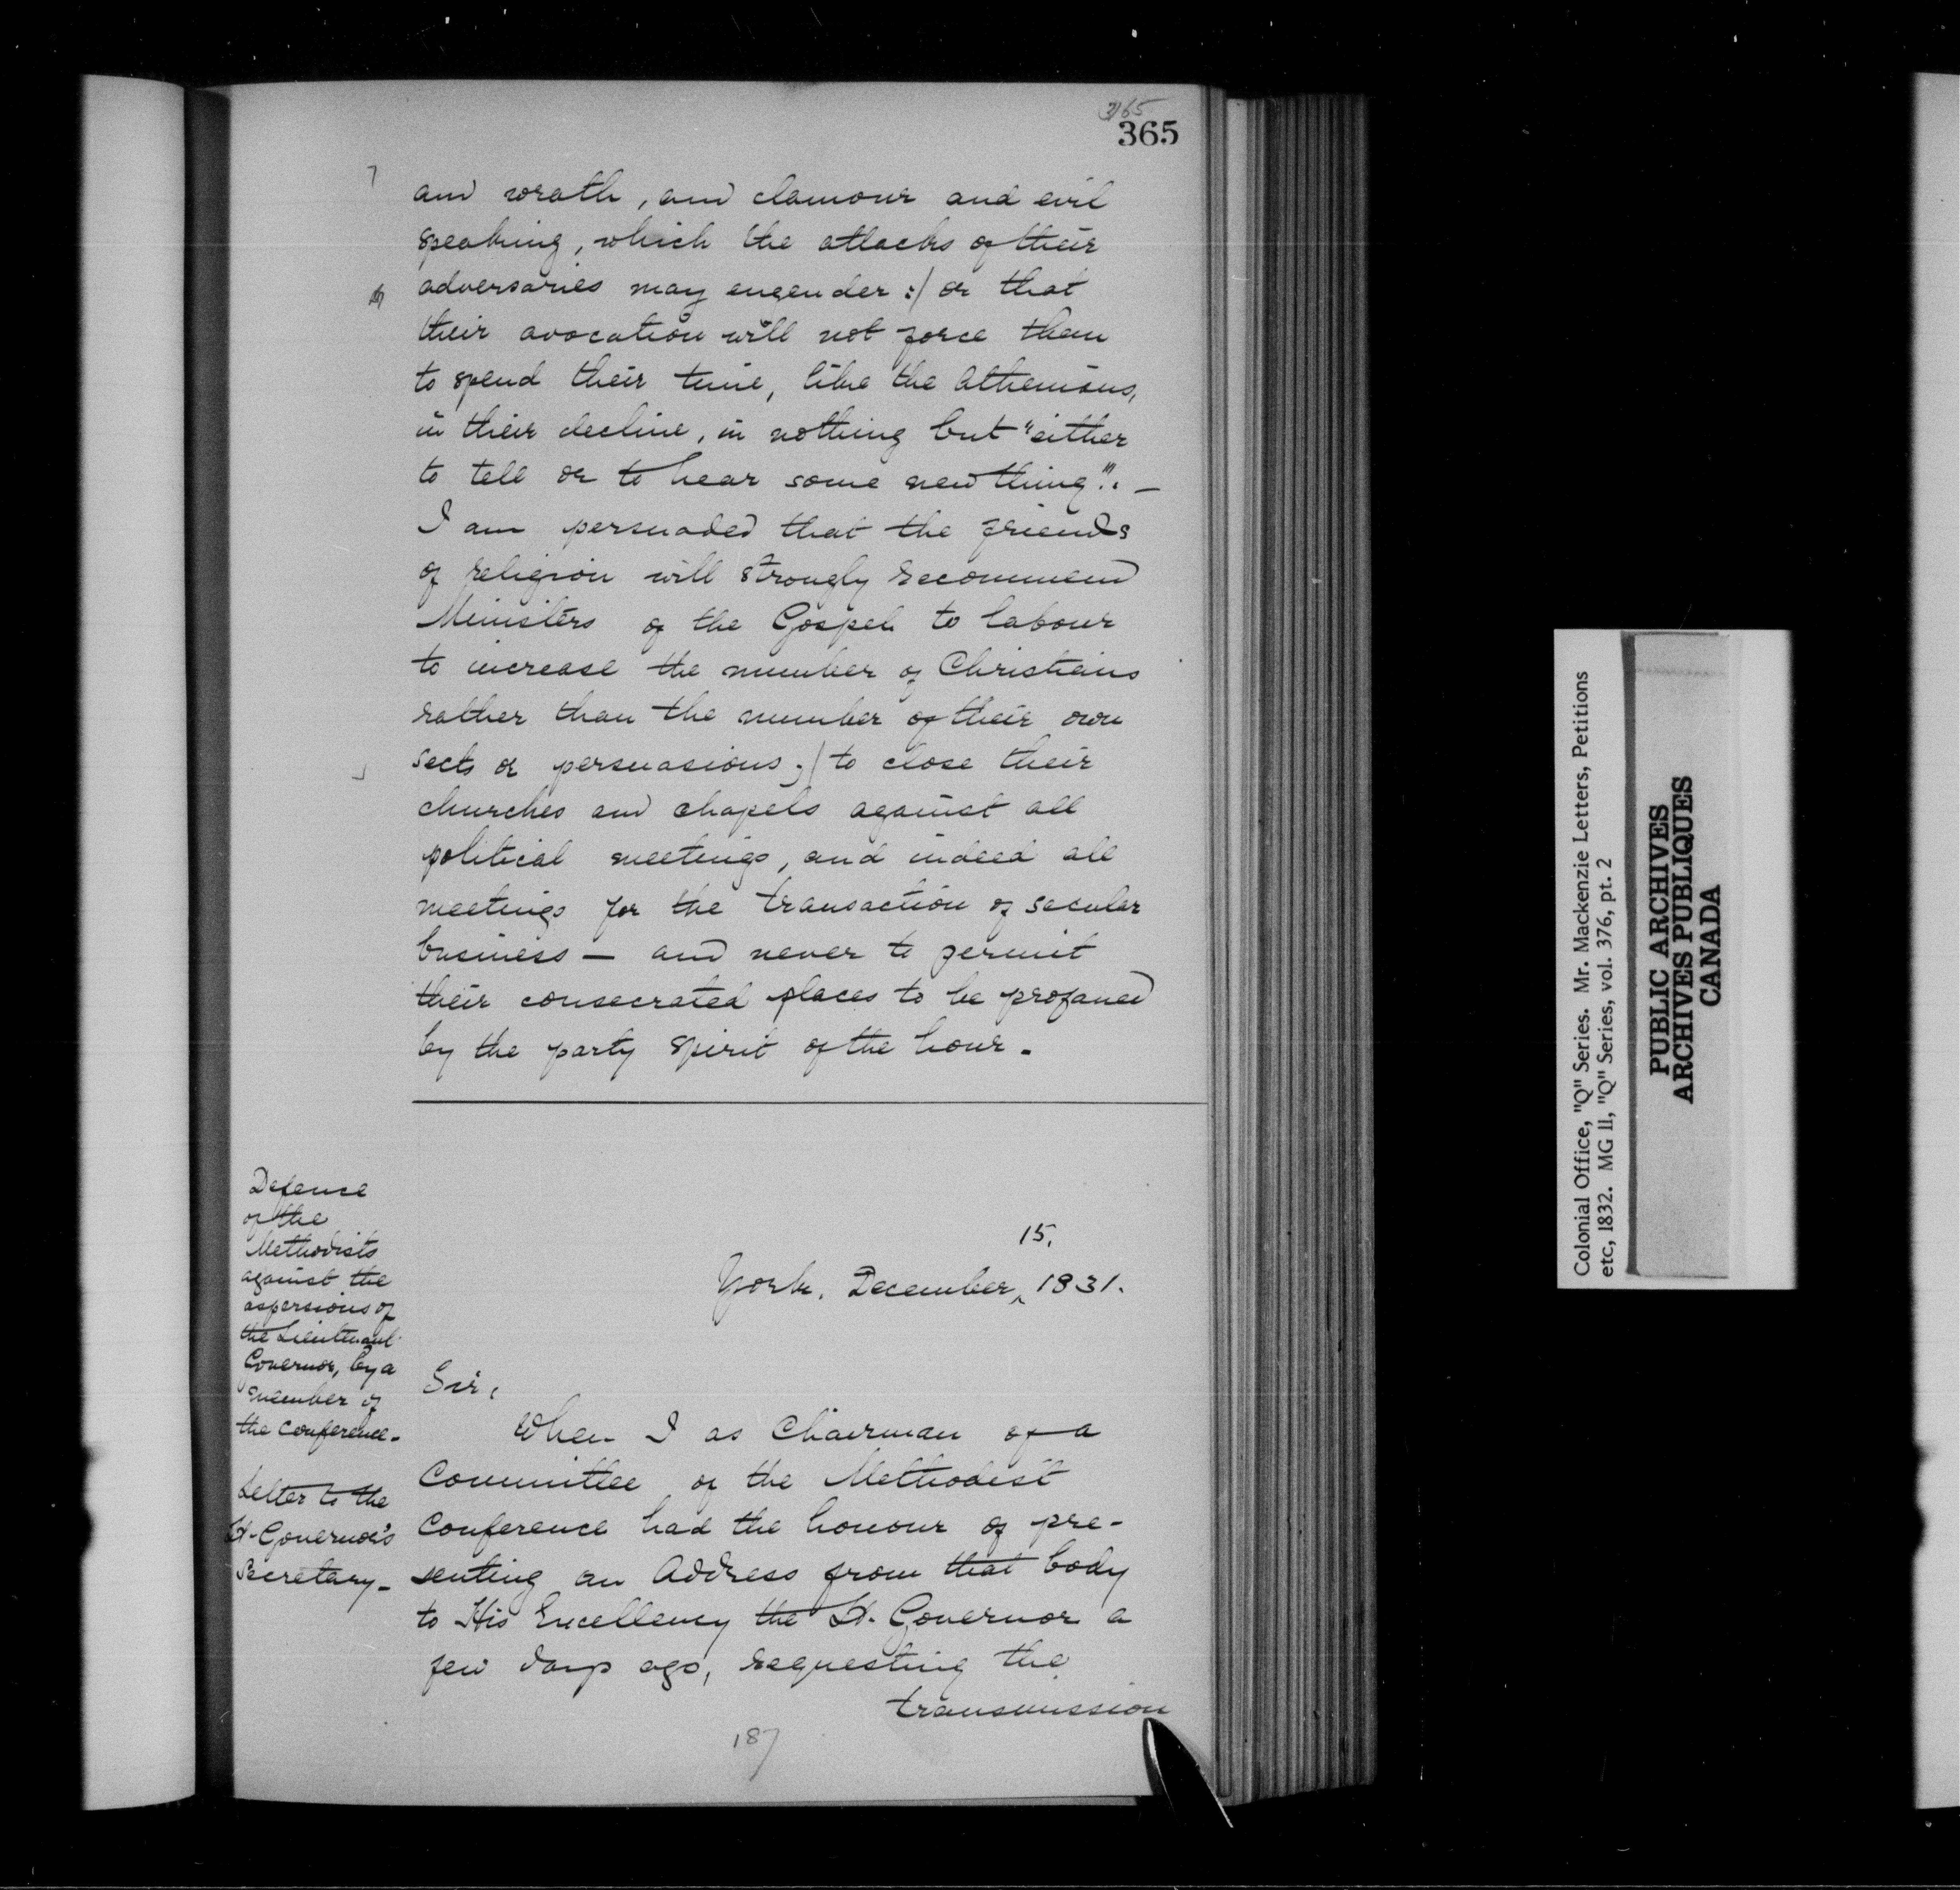 365
365
and wrath, and clamour and evil
speaking, which the attacks of their
adversaries may engender :/ or that
their avocation will not force them
to spend their time, like the Athenians,
in their decline, in nothing but "either
to tell or to hear some new thing". —
I am persuaded that the friends
of religion will strongly recommend
Ministers of the Gospel to labour
to increase the number of Christians
rather than the number of their own
sects or persuasions; / to close their
churches and chapels against all
political meetings, and indeed all
meetings for the transaction of secular
business — and never to permit
their consecrated places to be profaned
by the party spirit of the hour.
Defence
of the
Methodists
against the
aspersions of
the Lieutenant
Governor, by a
member of
the Conference.
Letter to the
Lt-Governor's
Secretary.
15,
York, December ‸ 1831.
Sir,
When I as Chairman of a
Committee of the Methodist
Conference had the honour of pre-
senting an Address from that body
to His Excellency the Lt. Governor a
few days ago, requesting the
transmission
187
Colonial Office, "Q" Series. Mr. Mackenzie Letters, Petitions
etc, 1832. MG 11, "Q" Series, vol. 376, pt. 2
PUBLIC ARCHIVES
ARCHIVES PUBLIQUES
CANADA